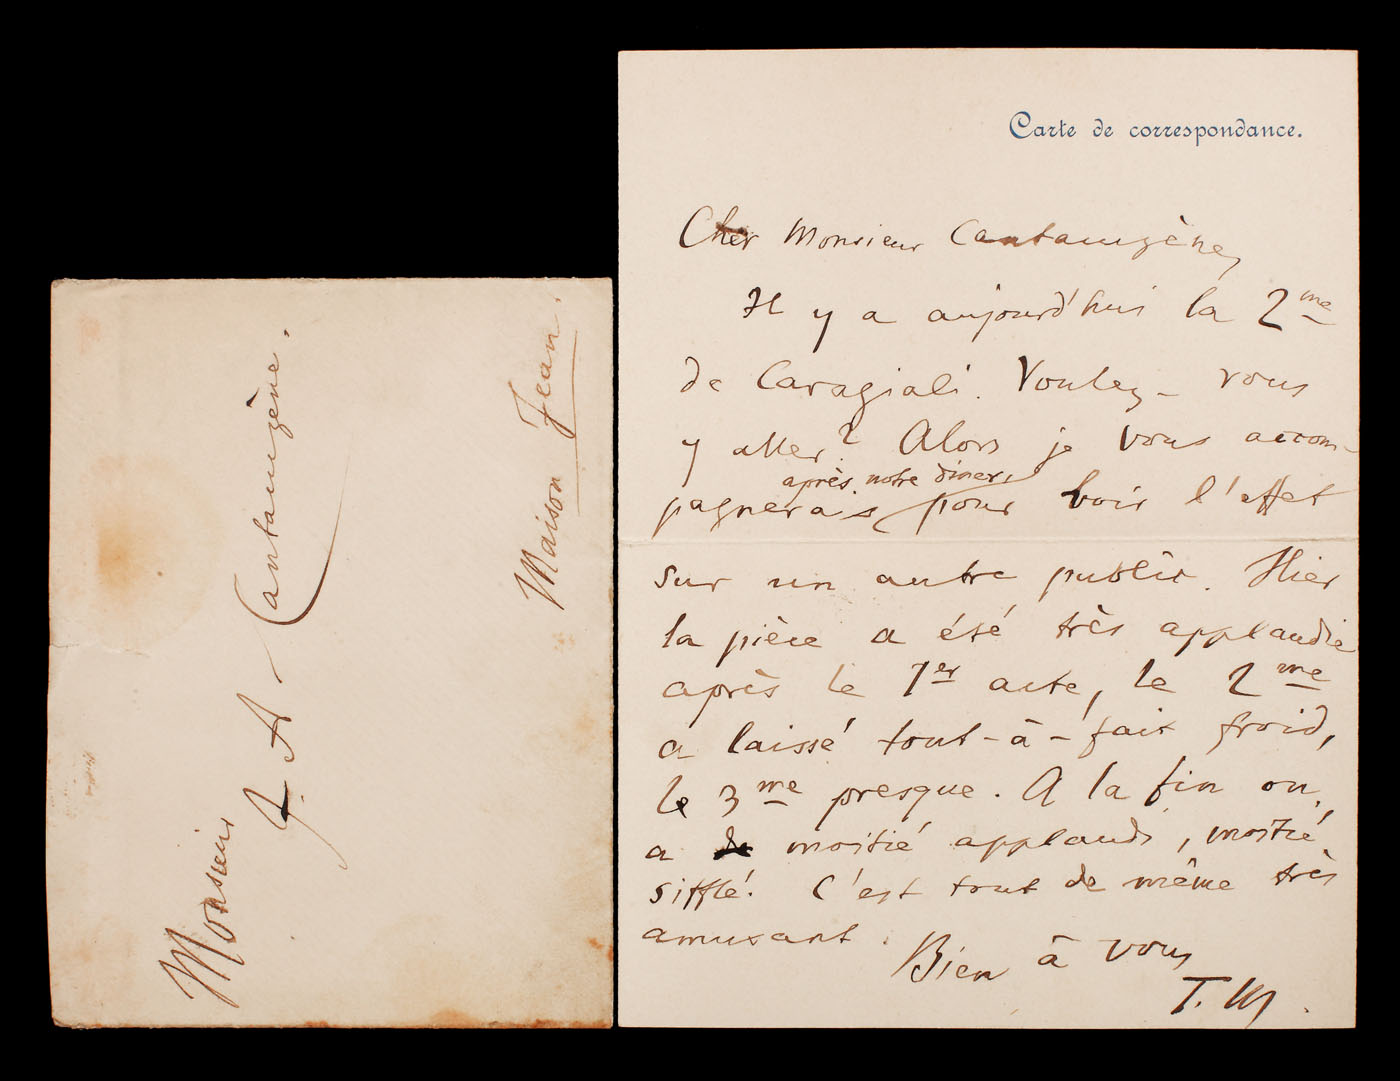 Monsieur
G. A. Cantauzène.
Maison Jean.
Carte de correspondance.
Cher Monsieur Cantauzène,
Il y a aujourd'hui la 2me
de Caragiali. Voulez-vous
y aller? Alors je vous accom-
pagnerais après notre diner pour voir l'effet
sur un autre public. Hier
la pièce a été très applaudie
après le 1er acte, le 2me
a laissé tout-à-fait froid,
le 3me presque. A la fin on
a moitié applaudi, moitié
sifflé. C'est tout de même très
amusant.
Bien à vous
T. M.